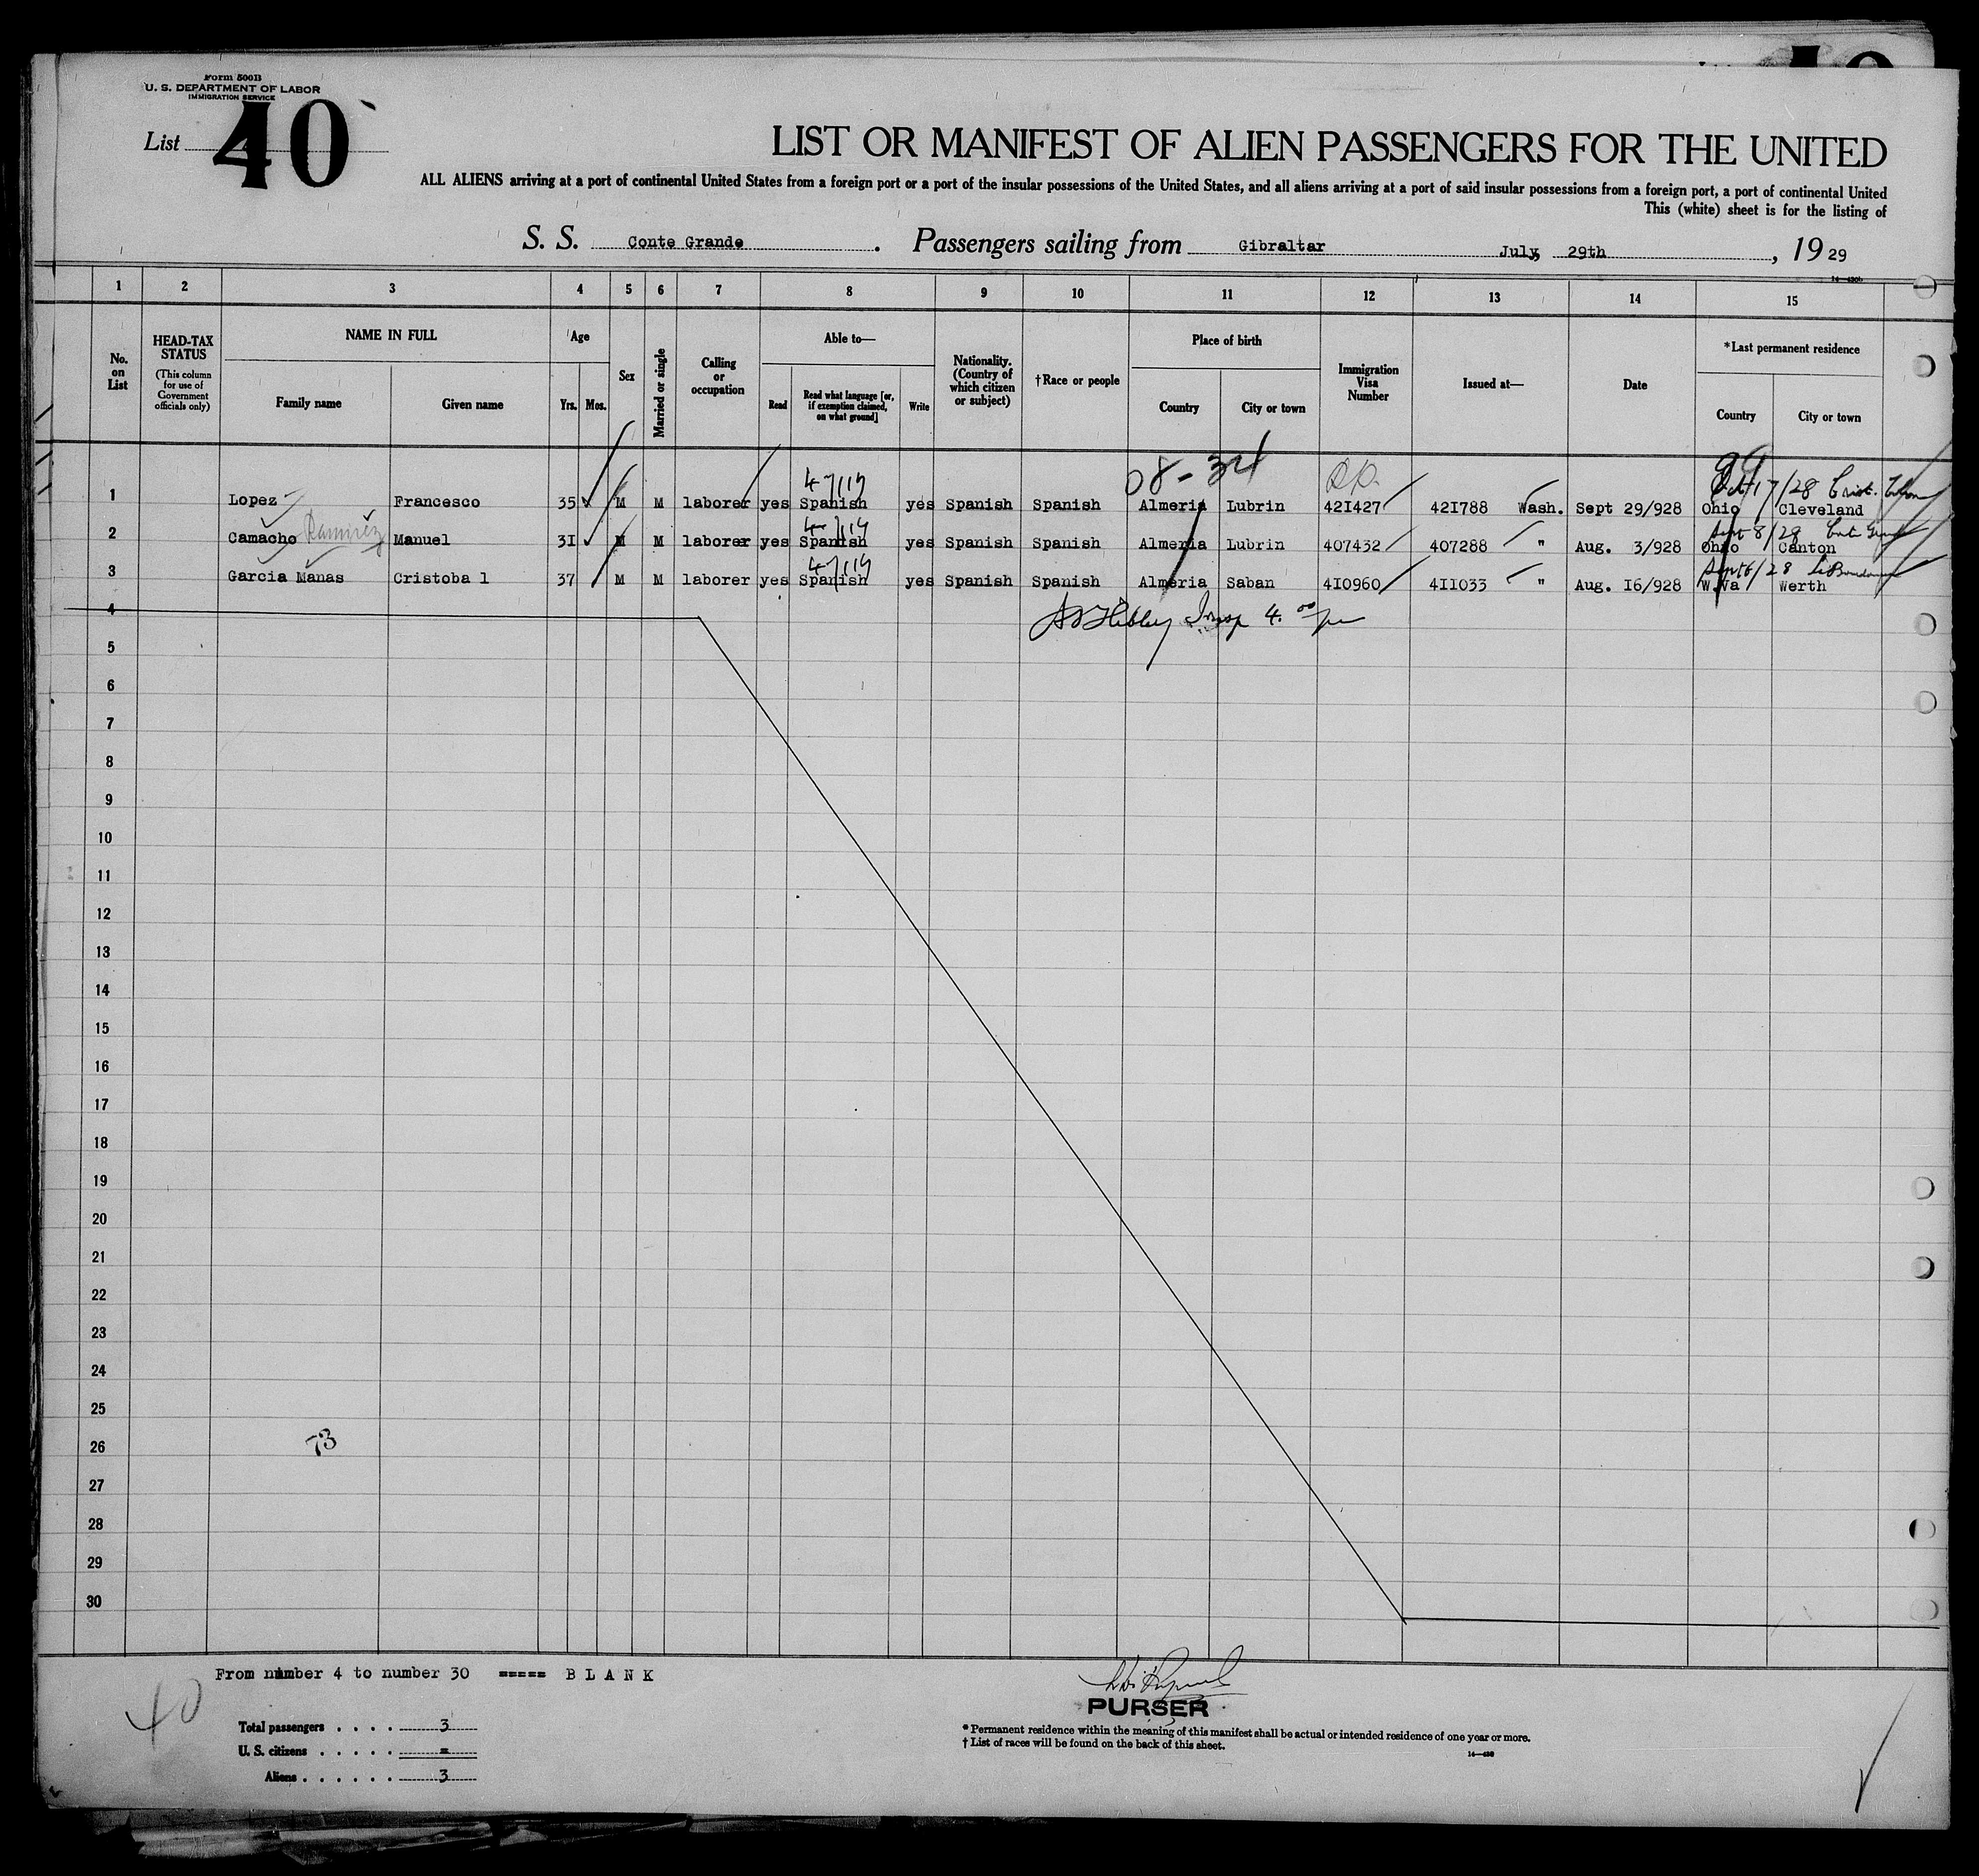 Form 500B
U. S. DEPARTMENT OF LABOR
IMMIGRATION SERVICE
List 40
LIST OR MANIFEST OF ALIEN PASSENGERS FOR THE UNITED
ALL ALIENS arriving at a port of continental United States from a foreign port or a port of the insular possessions of the United States, and all aliens arriving at a port of said insular possessions from a foreign port, a port of continental United
This (white) sheet is for the listing of
S. S. Conte Grande. Passengers sailing from Gibraltar July, 29th, 1929
1 2 3 4 5 6 7 8 9 10 11 12 13 14 15
No. on List
HEAD-TAX STATUS (This column for use of Government officials only)
NAME IN FULL
Family name
Given name
Age
Yrs. Mos.
Sex
Married or single
Calling or occupation
Able to—
Read
Read what language [or, if exemption claimed, on what ground]
Write
Nationality. (Country of which citizen or subject)
†Race or people
Place of birth
Country
City or town
Immigration Visa Number
Issued at—
Date
*Last permanent residence
Country
City or town
08-34
Oct 17/28
1 Lopez Francesco 35 M M laborer yes Spanish yes Spanish Spanish Almeria Lubrin 421427 421788 Wash. Sept 29/928 Ohio Cleveland
Sept 8/28
2 Camacho Ramirez Manuel 31 M M laborer yes Spanish yes Spanish Spanish Almeria Lubrin 407432 407288 " Aug. 3/928 Ohio Canton
Sept 6/28
3 Garcia Manas Cristoba l 37 M M laborer yes Spanish yes Spanish Spanish Almeria Saban 410960 411033 " Aug. 16/928 W.Va Werth
4
5
6
7
8
9
10
11
12
13
14
15
16
17
18
19
20
21
22
23
24
25
26
73
27
28
29
30
From number 4 to number 30 ===== B L A N K
40
PURSER
Total passengers . . . . 3
U. S. citizens . . . . . =
Aliens . . . . . . 3
*Permanent residence within the meaning of this manifest shall be actual or intended residence of one year or more.
†List of races will be found on the back of this sheet.